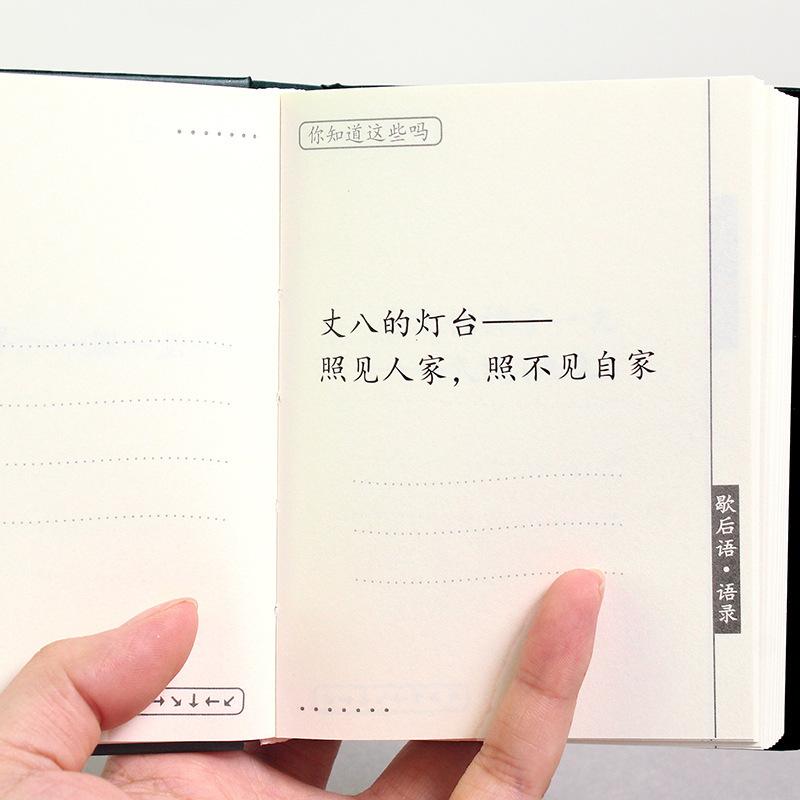 你知道这些吗
丈八的灯台——
照见人家，照不见自家
歇后语·语录